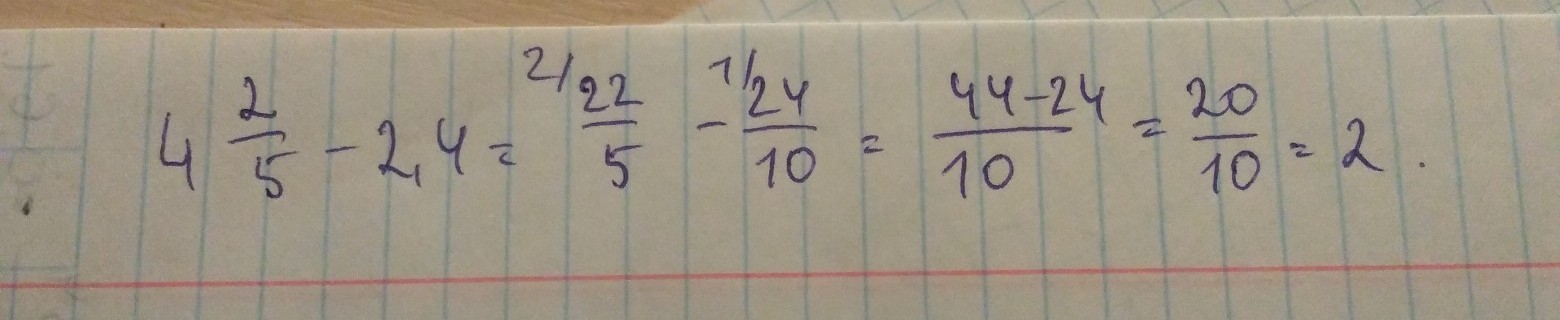 4 2/5 - 2,4 = 2/ 22/5 - 1/ 24/10 = 44-24/10 = 20/10 = 2.